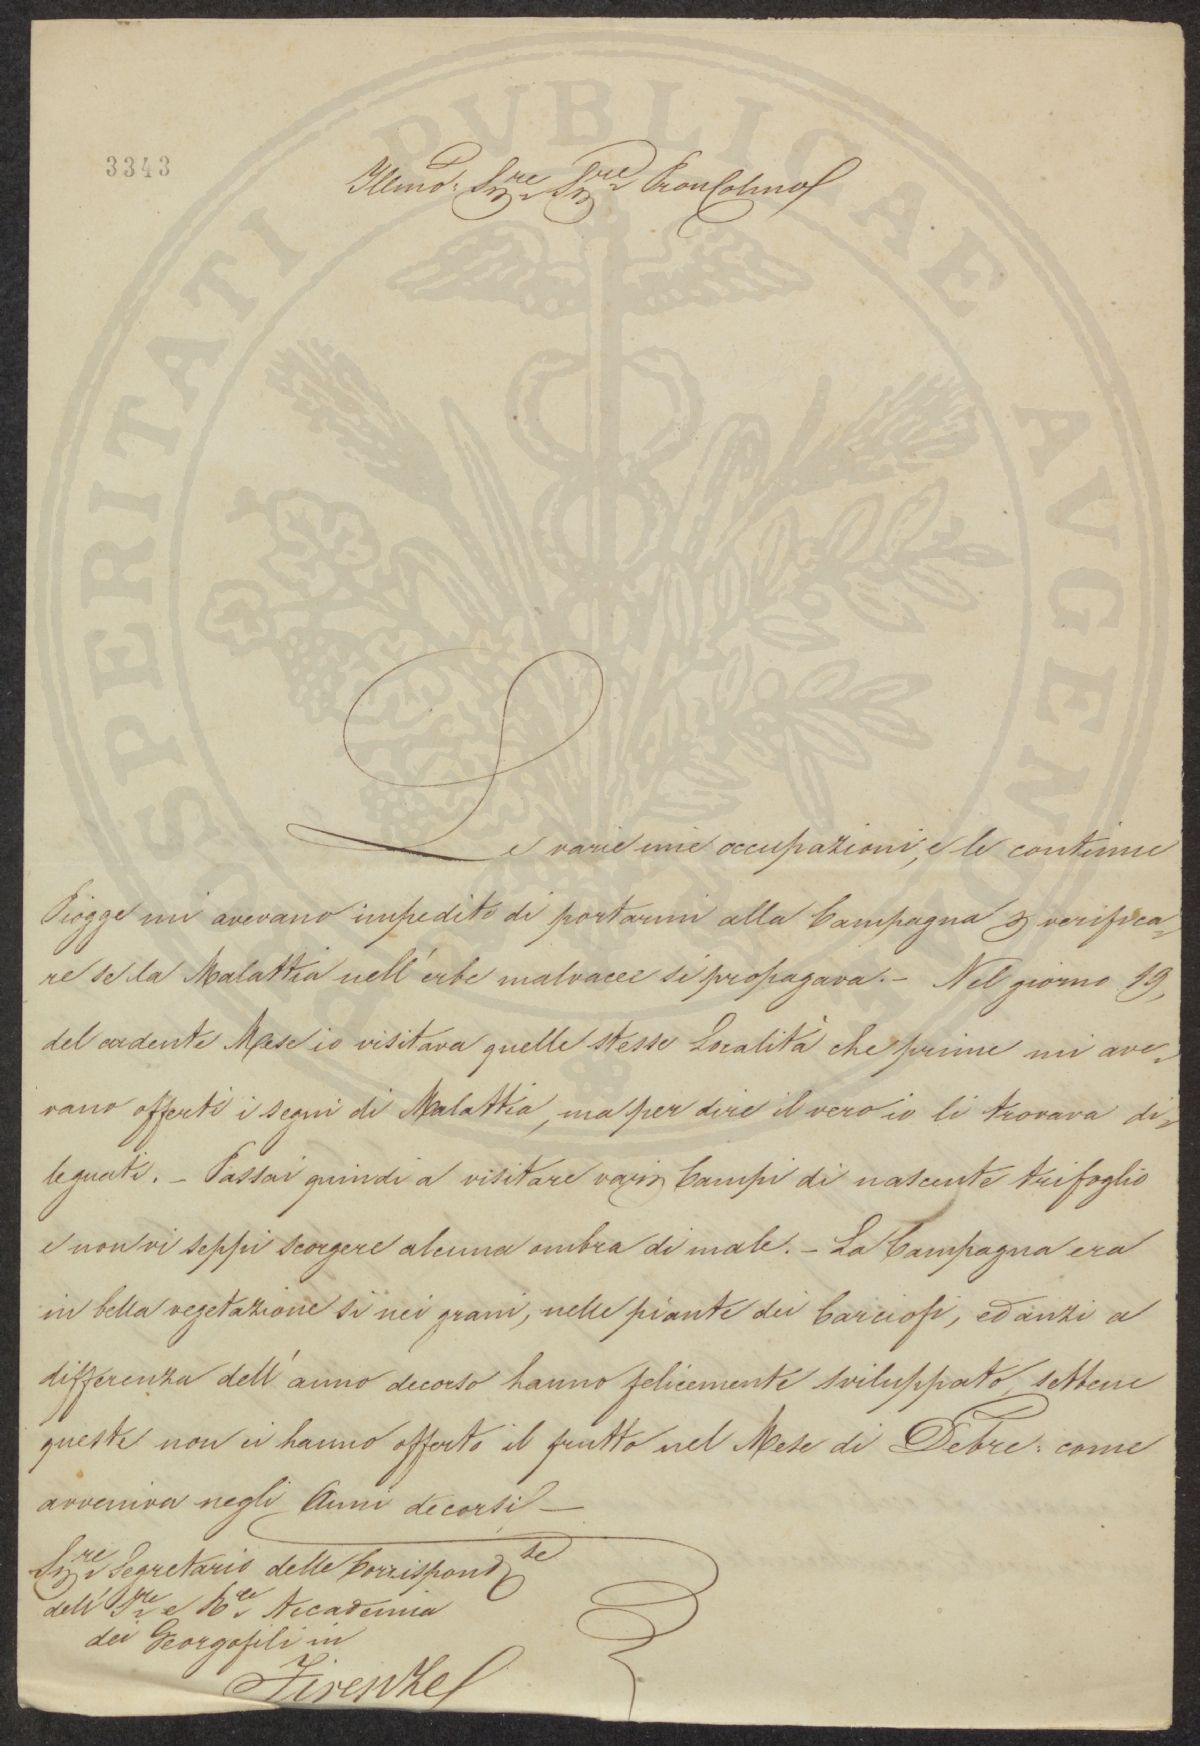 3343
Illmo: Sigre Sigre Pron Colmo
Le varie mie occupazioni, e le continue
Piogge mi avevano impedito di portarmi alla Campagna p verifica-
re se la Malattia nell'erbe malvacee si propagava. - Nel giorno 19,
del cadente Mese io visitava quelle stesse Località che prime mi ave-
vano offerti i segni di Malattia, ma per dire il vero io li trovava di-
leguati. - Passai quindi a visitare varij Campi di nascente trifoglio
e non vi seppi scorgere alcuna ombra di male. - La Campagna era
in bella vegetazione si nei grani, nelle piante dei Carciofi, ed anzi a
differenza dell'anno decorso hanno felicemente sviluppato, sebbene
queste non ci hanno offerto il frutto nel Mese di Debre: come
avveniva negli Anni decorsi -
Sigre Segretario delle Corrispondze
dell' e Rle Accademia
dei Georgofili in
Firenze
PROSPERITATI PVBLICAE AVGENDAE